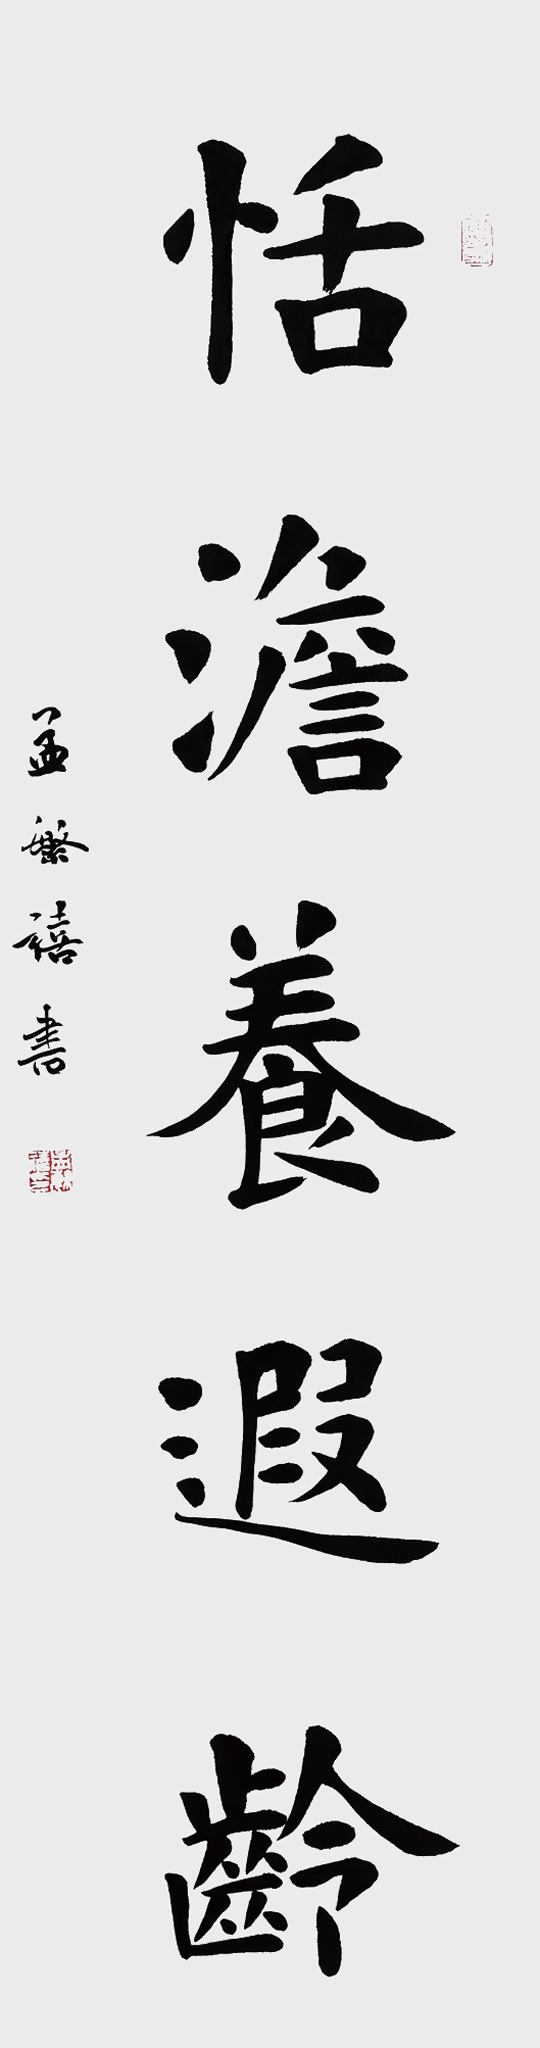 恬澹養遐齡
孟繁禧書